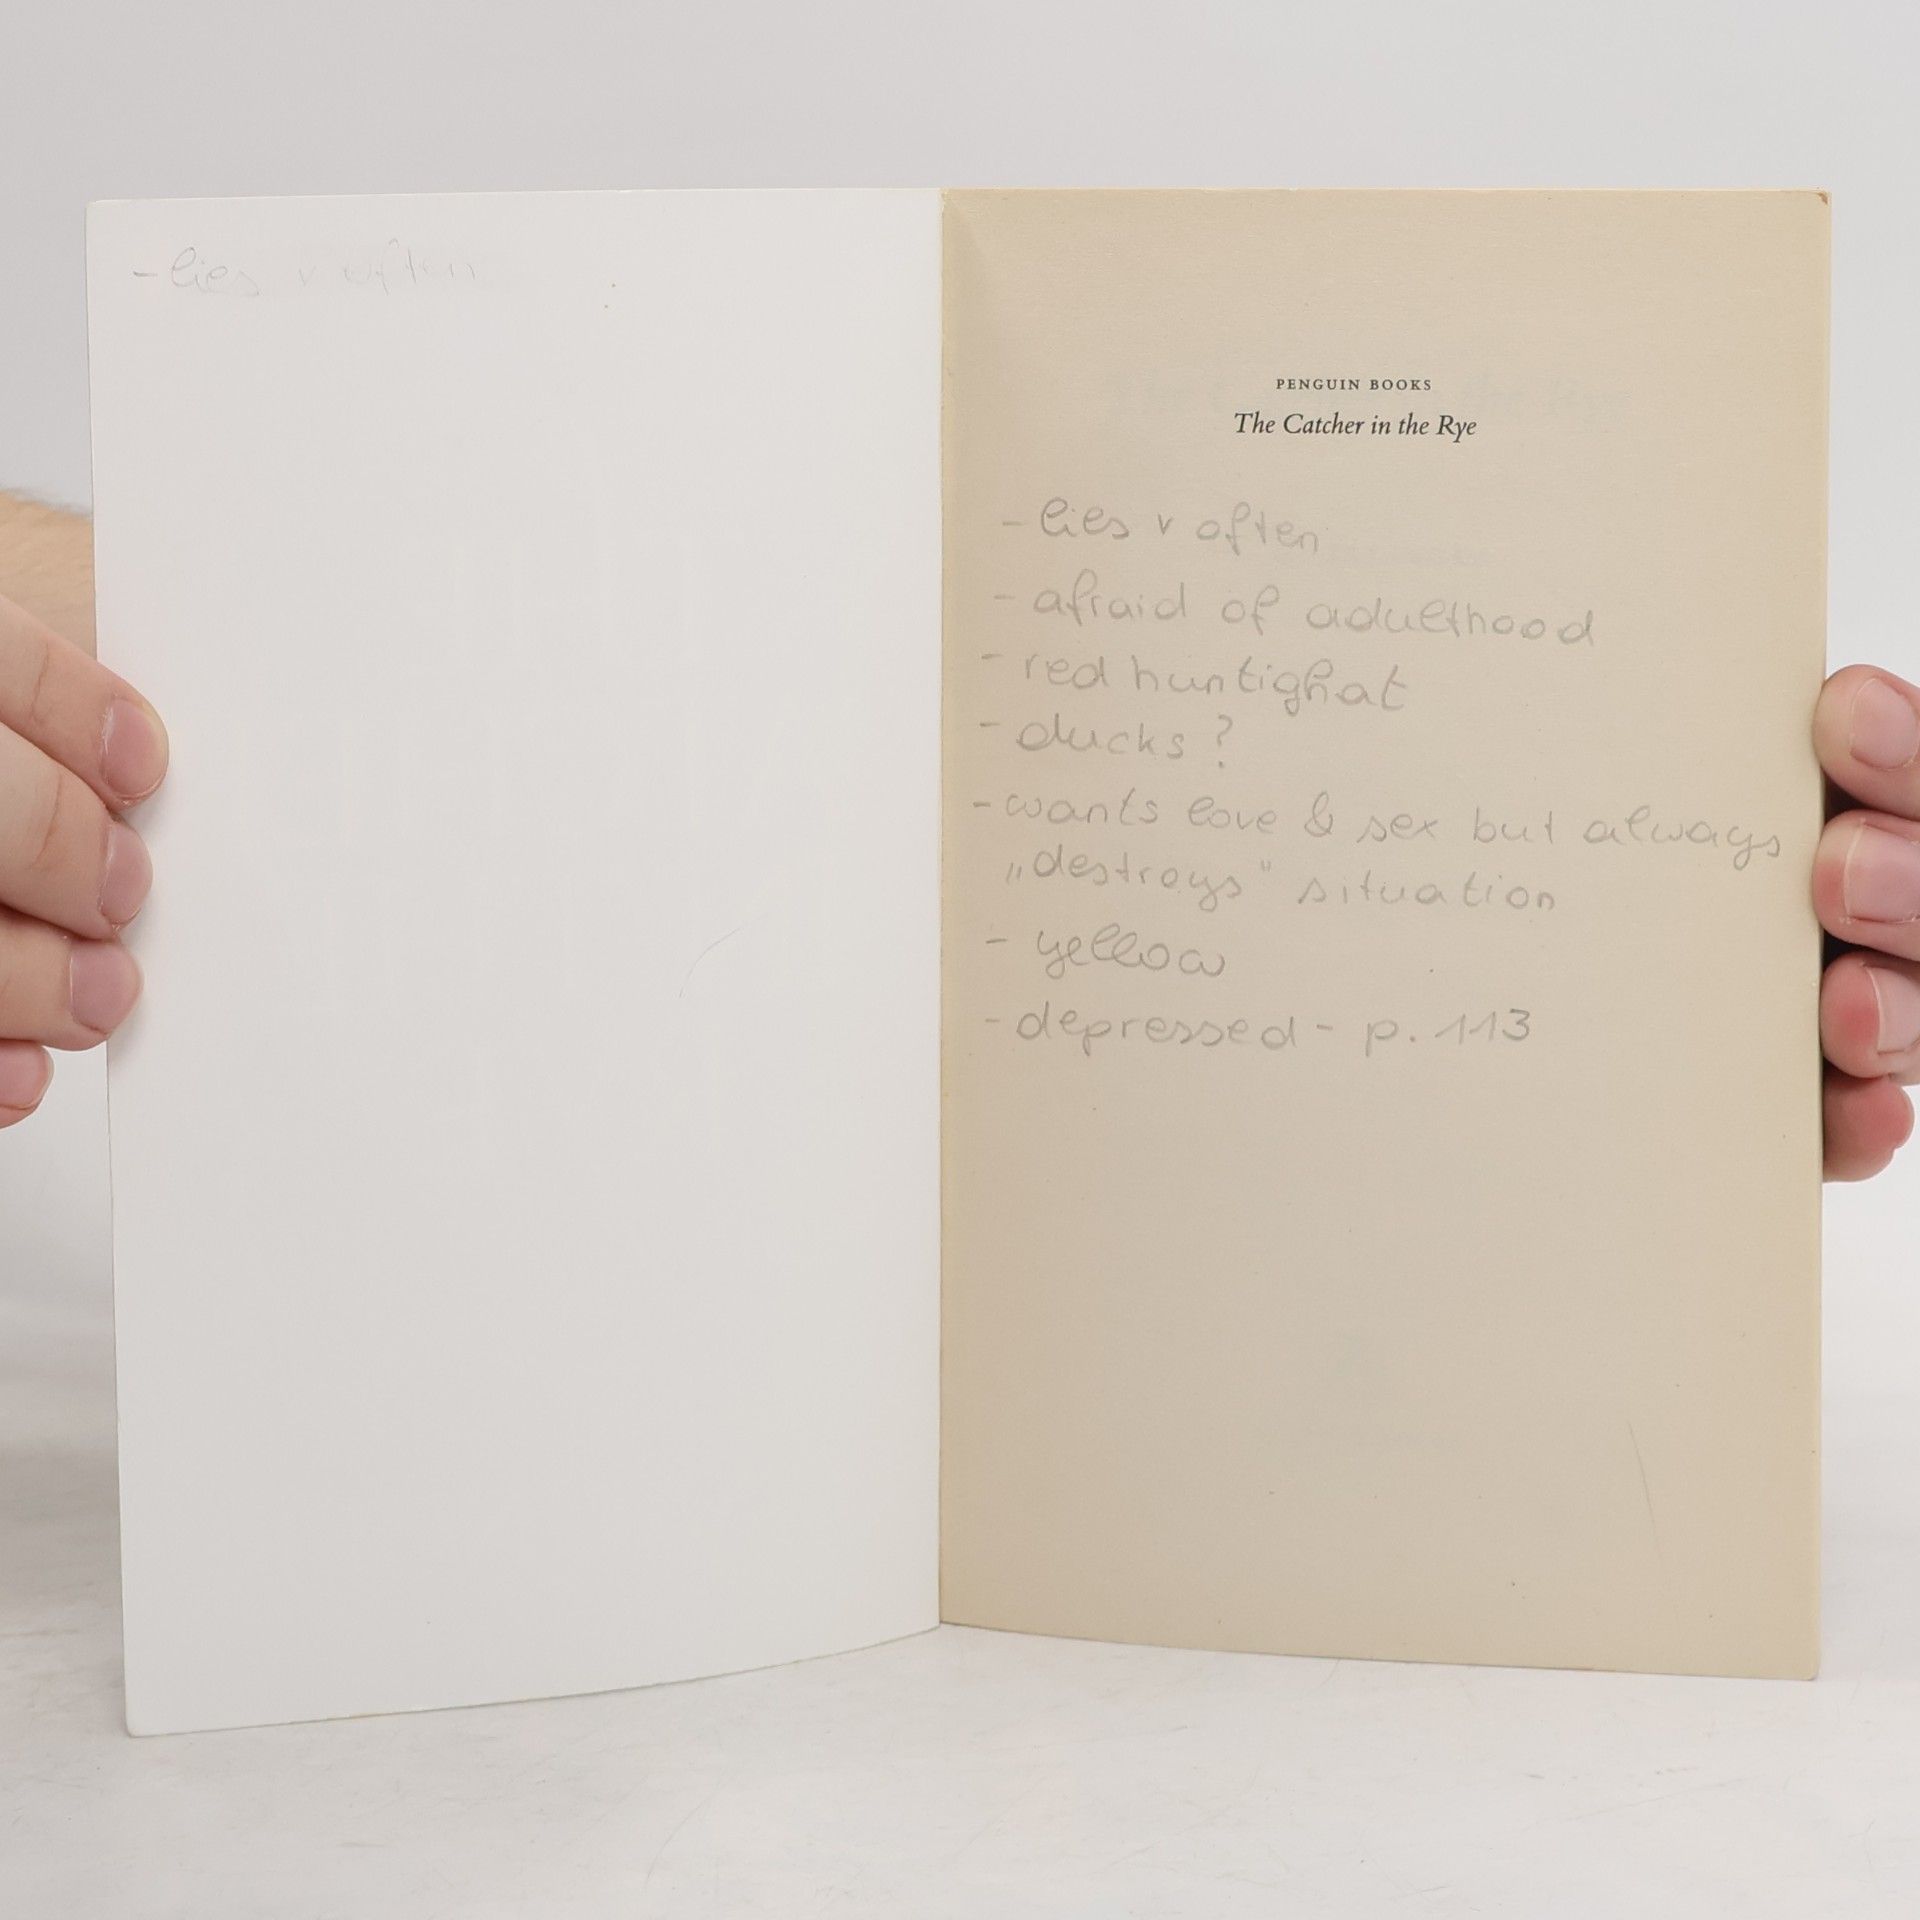 - lies v often
PENGUIN BOOKS
The Catcher in the Rye
- lies v often
- afraid of adulthood
- red huntighat
- ducks ?
- wants love & sex but always
„destroys" situation
- yellow
- depressed - p. 113